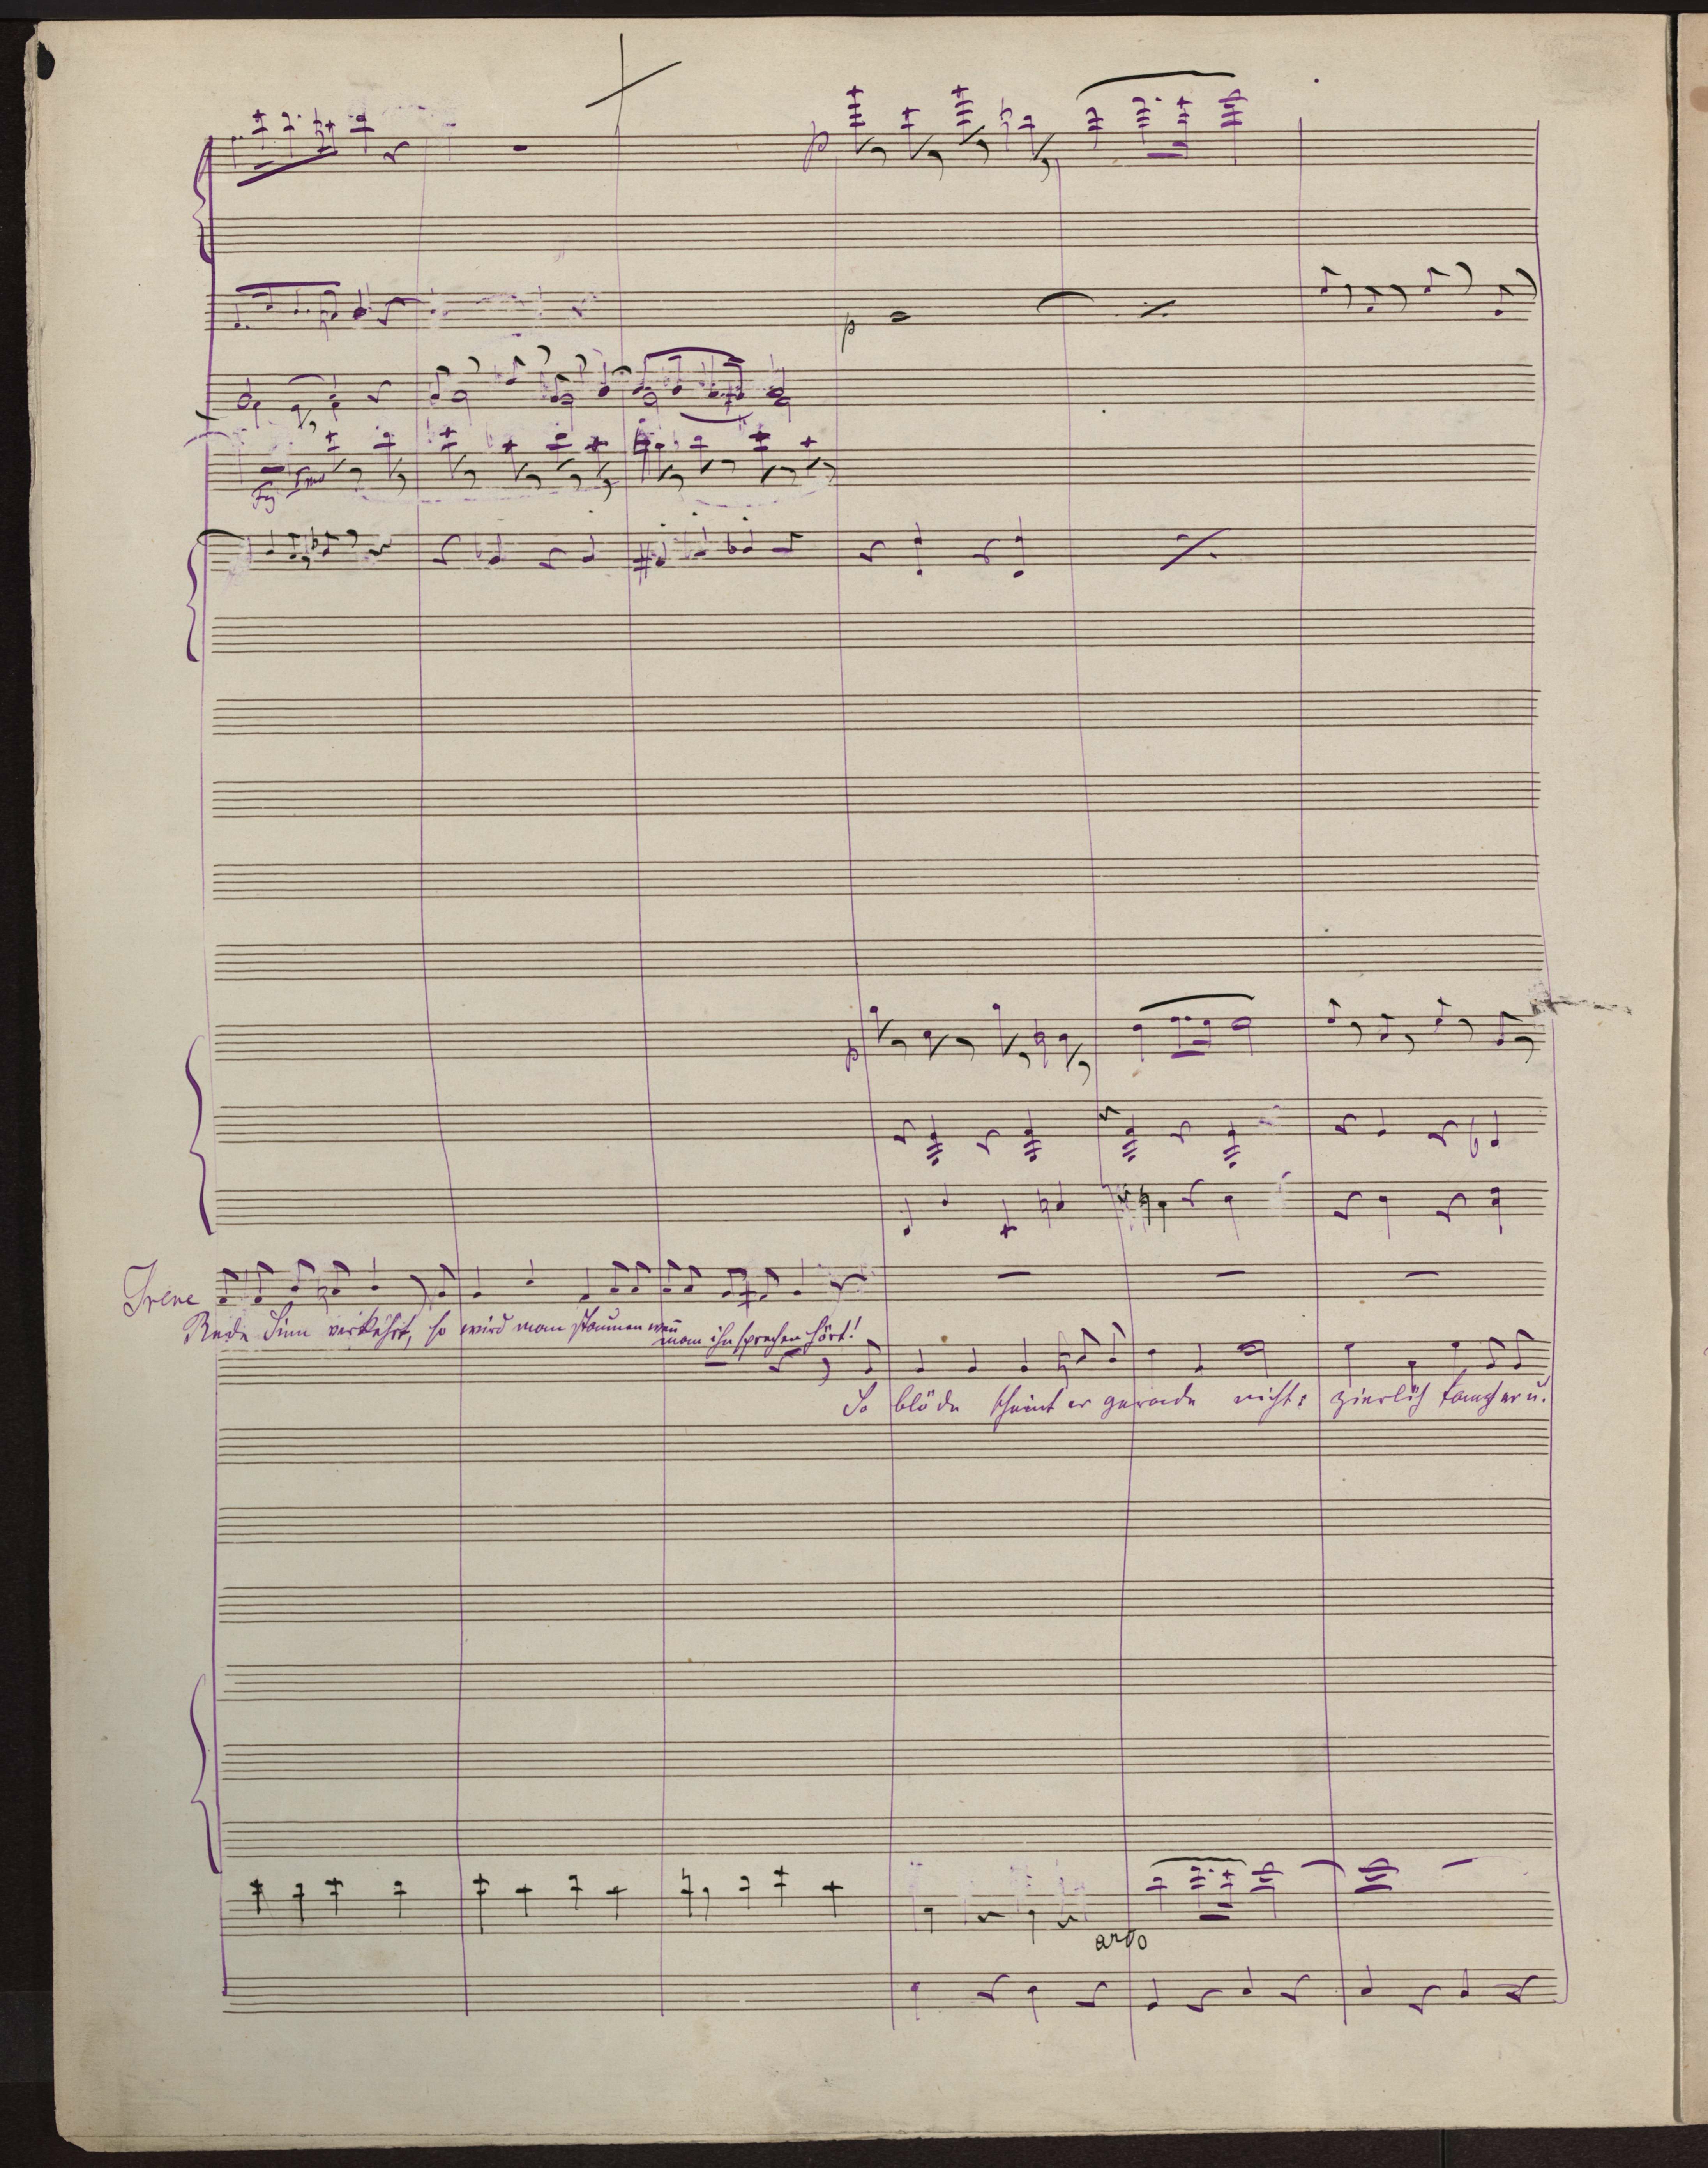 p
p
Fg Imo
p
Irene
Rede Sinn verkehrt, so wird man staunen wenn
man ihn sprechen hört!
So blöde scheint er gerade nicht: zierlich tanzt er u.
arco